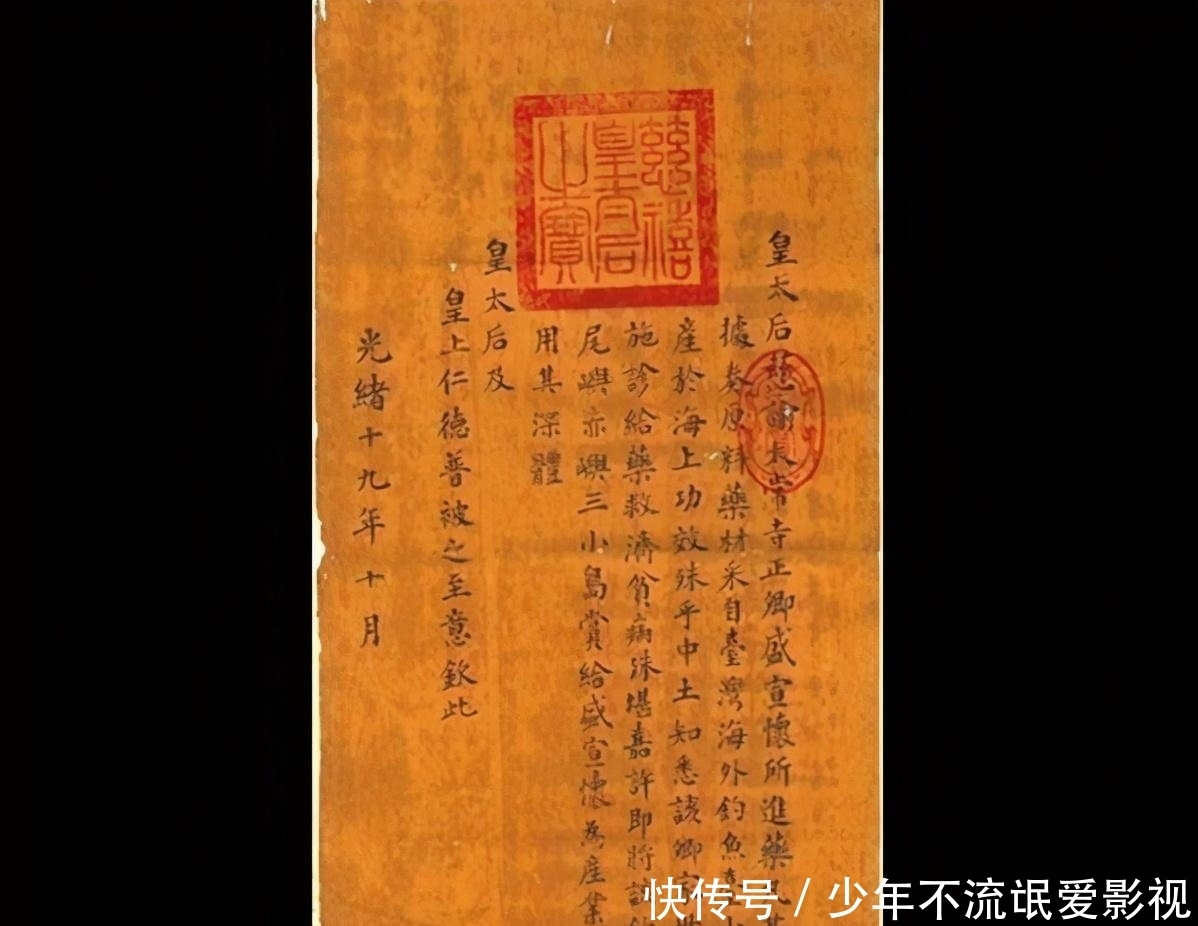 慈禧
皇太后
之寶
皇太后慈諭太常寺正卿盛宣懷所進藥
據奏原料藥材采自臺灣海外釣魚臺
産於海上功效殊乎中土知悉該卿
施診給藥救濟貧病殊堪嘉許即將該
尾嶼赤嶼三小島賞給盛宣懷為産業
用其深體
皇太后及
皇上仁德普被之至意欽此
光緒十九年十月
快传号 / 少年不流氓爱影视